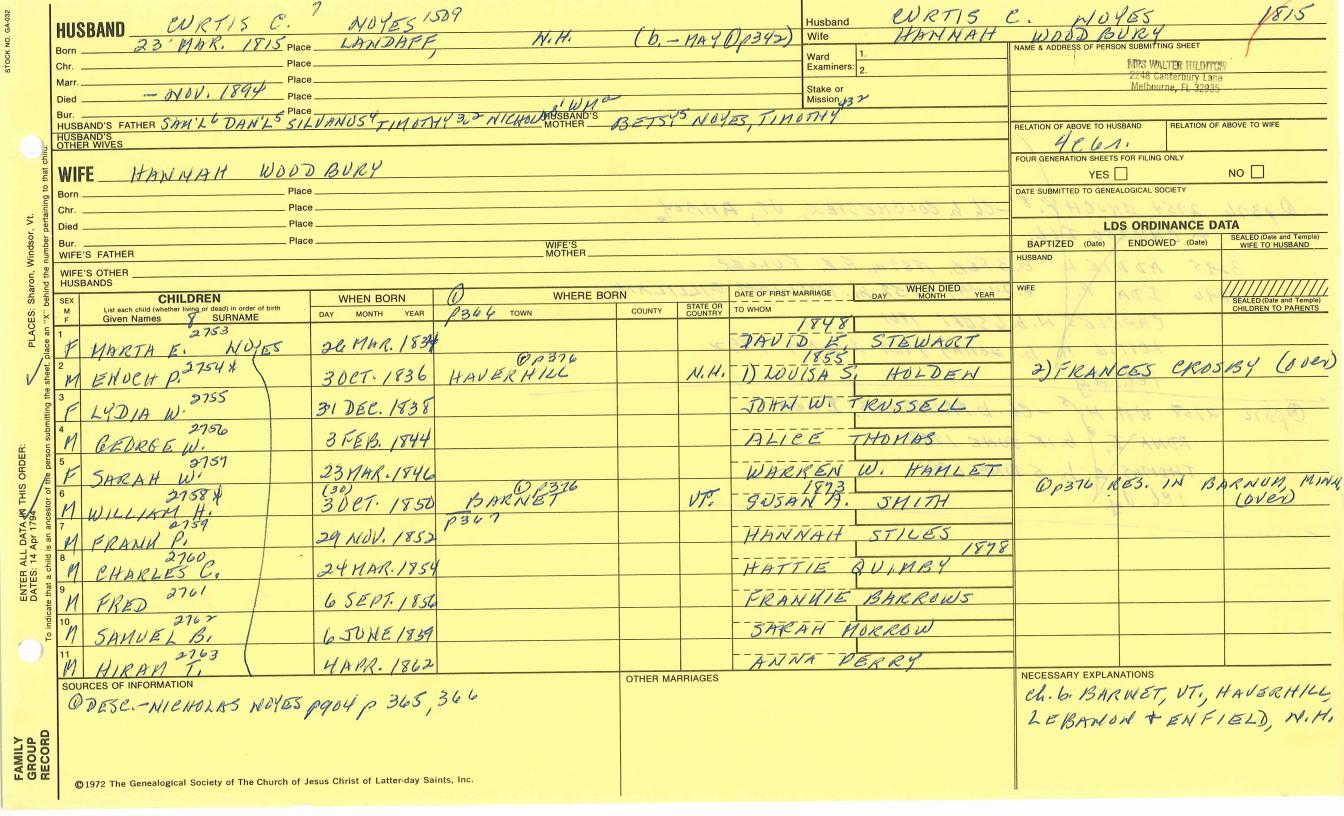 STOCK NO. GA-032
HUSBAND CURTIS C. 7 NOYES 1509
Born 23 MAR. 1815 Place LANDAFF, N.H. (b. - MAY ① p342)
Chr. Place
Marr. Place
Died - NOV. 1894 Place
Bur. Place
HUSBAND'S FATHER SAM'L 6 DAN'L 5 SILVANUS 4 TIMOTHY 3 2 NICHOLAS WM HUSBAND'S MOTHER BETSY 5 NOYES, TIMOTHY 432
HUSBAND'S OTHER WIVES
Husband CURTIS C. NOYES 1815
Wife HANNAH WOODBURY
Ward Examiners: 1.
2.
Stake or Mission
NAME & ADDRESS OF PERSON SUBMITTING SHEET
MRS WALTER HILDITCH
2248 Canterbury Lane
Melbourne, FL 32935
RELATION OF ABOVE TO HUSBAND RELATION OF ABOVE TO WIFE
FOUR GENERATION SHEETS FOR FILING ONLY
YES NO
DATE SUBMITTED TO GENEALOGICAL SOCIETY
WIFE HANNAH WOODBURY
Born Place
Chr. Place
Died Place
Bur. Place
WIFE'S FATHER WIFE'S MOTHER
WIFE'S OTHER HUSBANDS
LDS ORDINANCE DATA
BAPTIZED (Date) ENDOWED (Date) SEALED (Date and Temple) WIFE TO HUSBAND
HUSBAND
WIFE
SEALED (Date and Temple) CHILDREN TO PARENTS
SEX M F CHILDREN List each child (whether living or dead) in order of birth Given Names 8 SURNAME WHEN BORN DAY MONTH YEAR ① p366 WHERE BORN TOWN COUNTY STATE OR COUNTRY DATE OF FIRST MARRIAGE TO WHOM WHEN DIED DAY MONTH YEAR
1 F MARTA E. 2753 NOYES 26 MAR. 1834 1848 DAVID E. STEWART
2 M ENOCH P. 2754 X 3 OCT. 1836 ① p376 HAVERHILL N.H. 1855 1) LOUISA S. HOLDEN 2) FRANCES CROSBY (OVER)
3 F LYDIA W. 2755 31 DEC. 1838 JOHN W. TRUSSELL
4 M GEORGE W. 2756 3 FEB. 1844 ALICE THOMAS
5 F SARAH W. 2757 23 MAR. 1846 WARREN W. HAMLET
6 M WILLIAM H. 2758 X (30) 3 OCT. 1850 ① p376 BARNET p367 VT. 1873 SUSAN A. SMITH ① p376 RES. IN BARNUM, MINN. (OVER)
7 M FRANK P. 2759 29 NOV. 1852 HANNAH STILES
8 M CHARLES C. 2760 24 MAR. 1854 1878 HATTIE QUIMBY
9 M FRED 2761 6 SEPT. 1856 FRANKIE BARROWS
10 M SAMUEL B. 2762 6 JUNE 1859 SARAH MORROW
11 M HIRAM T. 2763 4 APR. 1862 ANNA PERRY
SOURCES OF INFORMATION
① DESC.-NICHOLAS NOYES p904 p 365, 366
OTHER MARRIAGES
NECESSARY EXPLANATIONS
Ch. b. BARNET, VT., HAVERHILL,
LEBANON + ENFIELD, N.H.
©1972 The Genealogical Society of The Church of Jesus Christ of Latter-day Saints, Inc.
FAMILY GROUP RECORD
ENTER ALL DATA IN THIS ORDER:
DATES: 14 Apr 1794
PLACES: Sharon, Windsor, Vt.
To indicate that a child is an ancestor of the person submitting the sheet, place an "X" behind the number pertaining to that child.